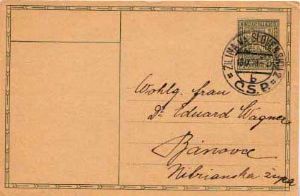 ŽILINA NA SLOVENSKU 2
b
Č.S.P.
Wohlg. frau
Dr Eduard Wagner
Bánovce
Nitrianska župa